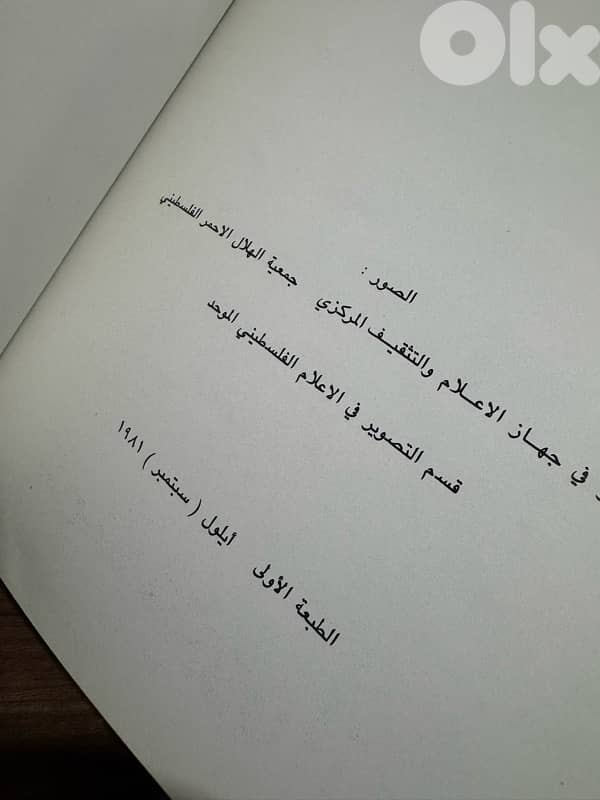 olx
الصور :
في جهـاز الاعـلام والتثقيـف المركزي جمعية الهلال الاحمر الفلسطيني
قسم التصوير في الاعلام الفلسطيني الموحد
الطبعة الأولى أيلول ( سبتمبر ) ١٩٨١